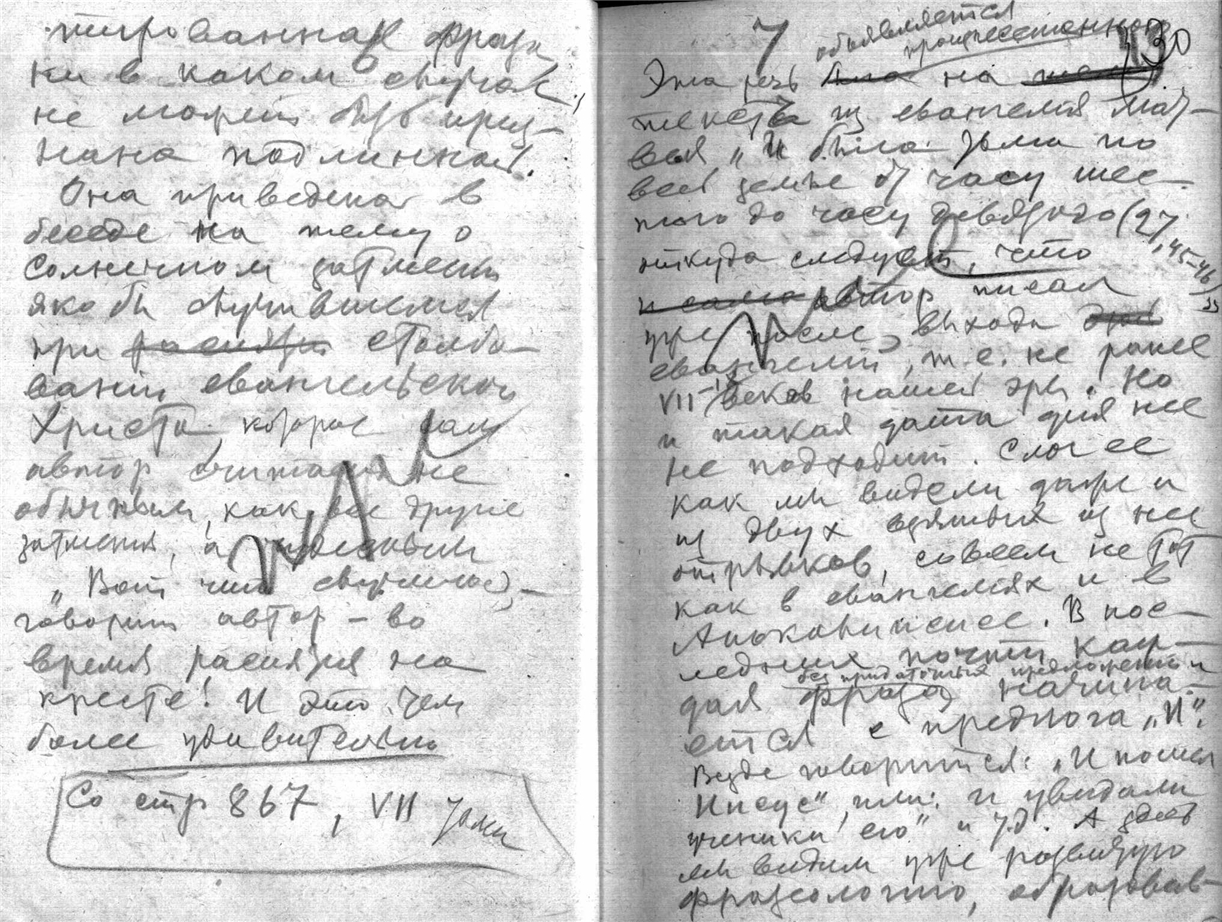 тированная фраза
ни в каком случае
не может быть приз-
нана подлинной.
Она приведена в
беседе на тему о
солнечном затмении
якобы случившемся
при распятии столбо-
вании евангельского
Христа, которое сам
автор считает не
обычным, как все другие
затмения, а чудесным
„Вот что случилось, –
говорит автор – во
время распятия на
кресте! И это тем
более удивительно
Со стр 867, VII
7
130
объявляется
произнесенной
Эта речь на
текст из евангелия Мат-
вея „И была тьма по
всей земле от часу шес-
того до часу девятого (27, 45-46)
откуда следует, что
и сам автор писал
уже после выхода
евангелий, т.е. не ранее
VII веков нашей эры. Но
и такая дата для нее
не подходит. Слог ее
как мы видели даже и
из двух взятых из нее
отрывков, совсем не тот
как в евангелиях и в
Апокалипсисе. В пос-
ледних почти каж-
без придаточных предложений
дая фраза начина-
ется с предлога „И“.
Везде говорится: „И пошел
Иисус“, или: и увидали
ученики его“ и т.д. А здесь
мы видим уже развитую
фразеологию, образовав-